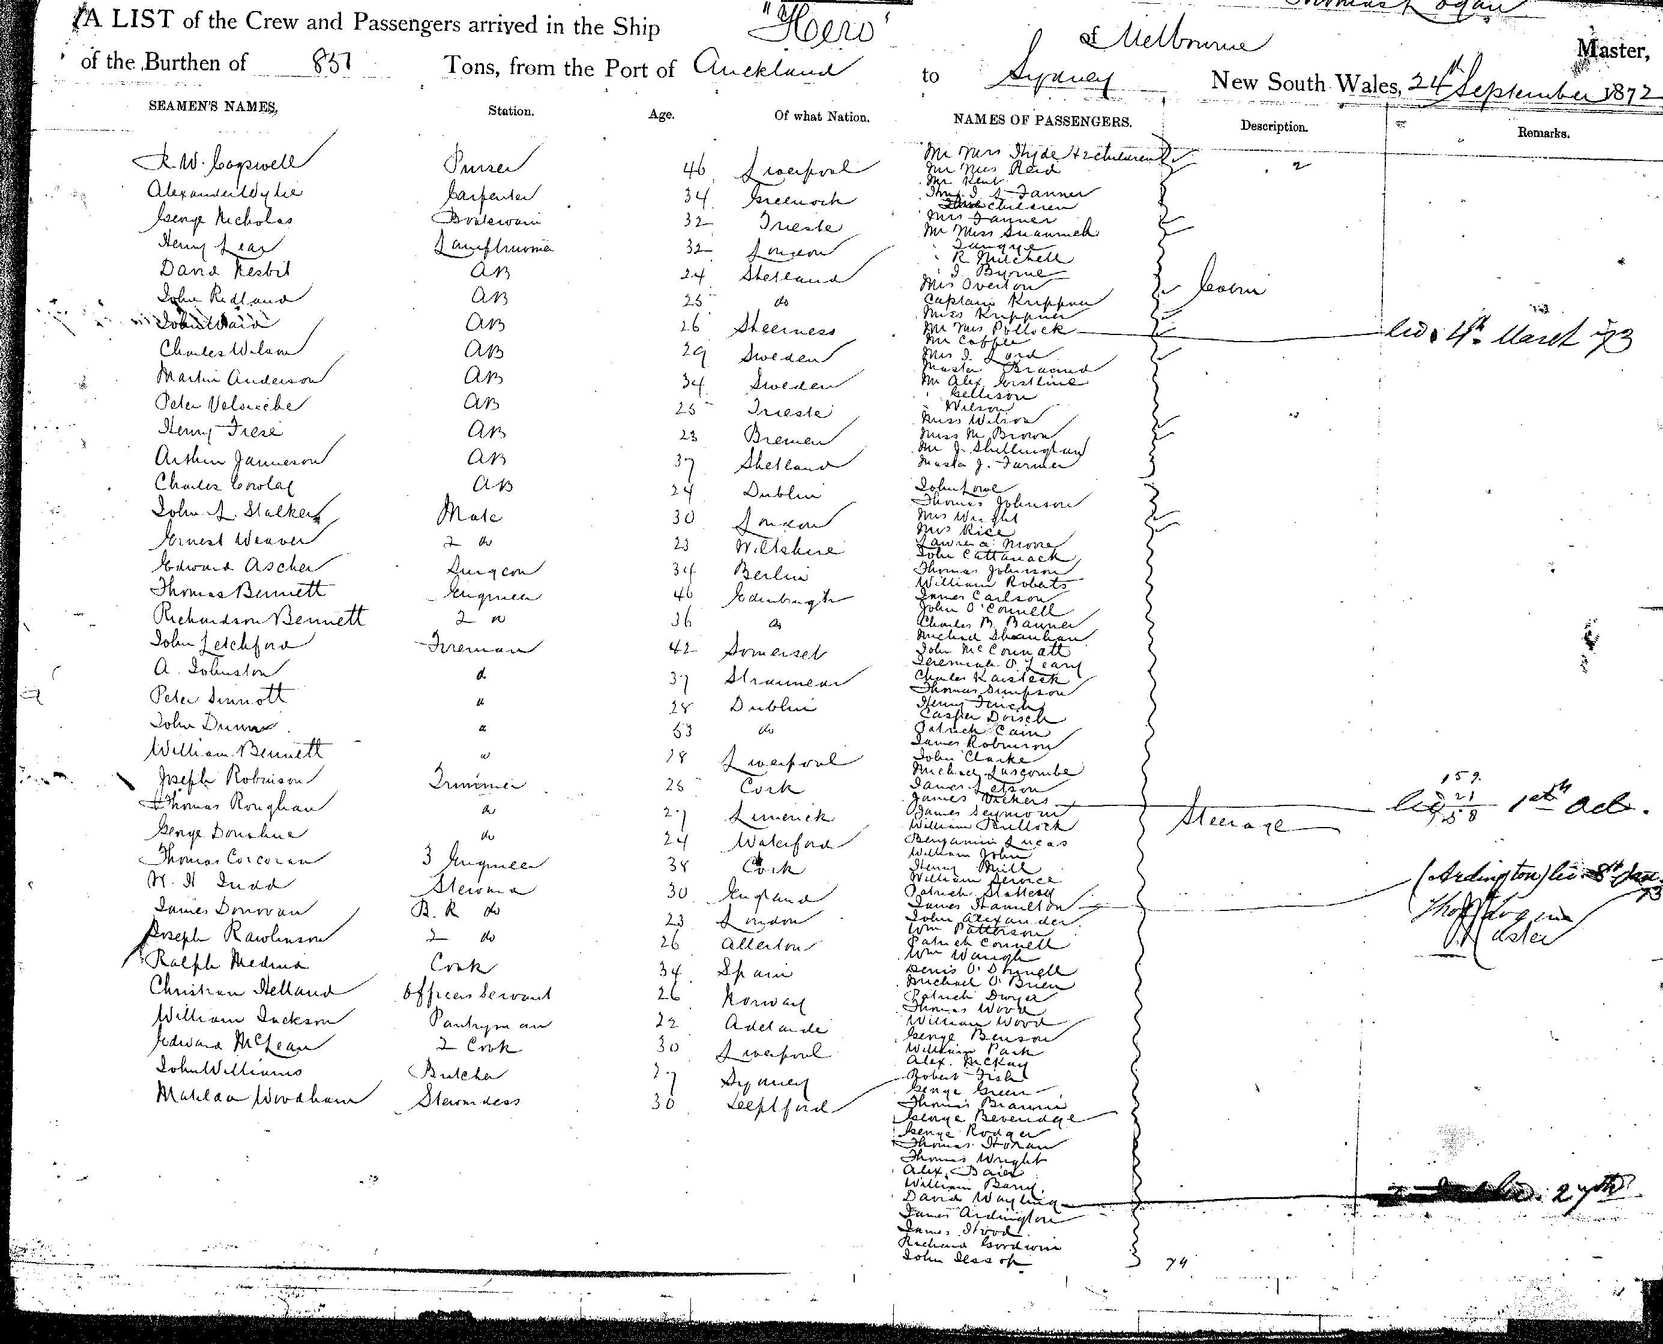 A LIST of the Crew and Passengers arrived in the Ship "Hero" of Melbourne Master,
of the Burthen of 857 Tons, from the Port of Auckland to Sydney New South Wales, 24th September 1872
SEAMEN'S NAMES, Station. Age. Of what Nation. NAMES OF PASSENGERS. Description. Remarks.
R. W. Cogswell Purser 46 Liverpool
Alexander Wylie Carpenter 34 Greenock
George Nicholas Boatswain 32 Trieste
Henry Lear 32 London
David Nesbit AB 24 Shetland
John Redland AB 25 do
John Ward AB 26 Sheerness
Charles Wilson AB 29 Sweden
Martin Anderson AB 34 Sweden
Peter AB 25 Trieste
Henry Frese AB 23 Bremen
Arthur Jamieson AB 37 Shetland
Charles AB 24 Dublin
John L. Stalker Mate 30 London
Ernest Weaver 2 do 23 Wiltshire
Edward Ascher Surgeon 34 Berlin
Thomas Bennett Engineer 46 Edinburgh
Richardson Bennett 2 do 36 do
John Letchford Fireman 42 Somerset
A. Johnston do 37 Stranraer
Peter Sinnott " 28 Dublin
John Dunn " 53 do
William Bennett " 28 Liverpool
Joseph Robinson Trimmer 25 Cork
Thomas Roughan do 27 Limerick
George Donohue do 24 Waterford
Thomas Corcoran 3 Engineer 38 Cork
H. H. Judd Steward 30 England
James Donovan B. R do 23 London
Joseph Rawlinson 2 do 26 Allerton
Ralph Medina Cook 34 Spain
Christian Helland Officers Servant 26 Norway
William Jackson Pantryman 22 Adelaide
Edward McLean 2 Cook 30 Liverpool
John Williams Butcher 27 Sydney
Matilda Woodham Stewardess 30 Deptford
Mr Mrs Hyde + 2 children
Mr Mrs Reid
Mr Kent
J. Fanner
children
Mrs Fanner
Mr Miss
" Tangye
" R Mitchell
" J. Byrne
Mrs Overton
Captain Krippner
Miss Krippner
Mr Mrs Pollock 4th March 73
Mr
Mrs J. Lord
Master
Mr Alex
" Gellison
" Wilson
Miss Wilson
Miss M. Brown
Mr J. Shillington
Master J. Farmer
Cabin
John Lowe
Thomas Johnson
Mrs Wright
Mrs Rice
Lawrence Moore
John Cattanach
Thomas Johnson
William Roberts
James Carlson
John O'Connell
Charles B. Banner
Michael Shanahan
John McConnatt
Jeremiah O'Leary
Charles
Thomas Simpson
Henry Finch
Casper Dorsch
Patrick Cain
James Robinson
John Clarke
Michael Luscombe
James Letson
James Vickers 1st Oct.
James Seymour
William Bullock
Benjamin Lucas
William John
Henry Mill
William Service
Patrick Slattery
James Hamilton (Ardington) 8th Jan 73
John Alexander
Wm Patterson
Patrick Connell
Wm Waugh
Denis O'Donnell
Michael O'Brien
Patrick Dwyer
Thomas Wood
William Wood
George Benson
William Park
Alex. McKay
Robert Fish
George Green
Thomas
George Beveridge
George Rodger
Thomas Horan
Thomas Wright
Alex. Baier
William Barry
David Wayling 27th
James Ardington
James Wood
Richard Goodwin
John Jessop
Steerage
74
Thos Logan
Master